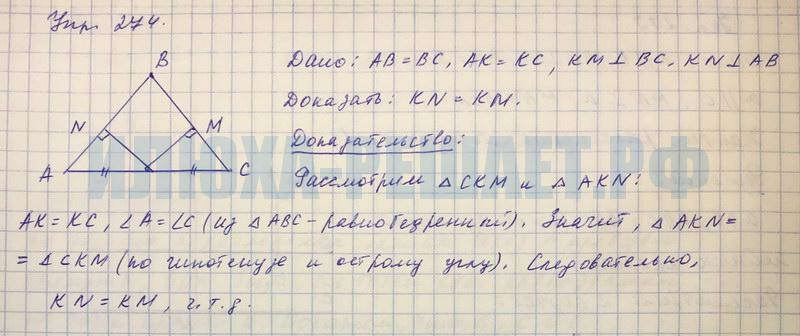 Упр. 274.
B
N
M
A
C
Дано: AB = BC, AK = KC, KM ⊥ BC, KN ⊥ AB
Доказать: KN = KM.
Доказательство:
Рассмотрим △CKM и △AKN:
AK = KC, ∠A = ∠C (из △ABC - равнобедренный). Значит, △AKN =
= △CKM (по гипотенузе и острому углу). Следовательно,
KN = KM, ч.т.д.
ИЛЮХА РЕШАЕТ.РФ